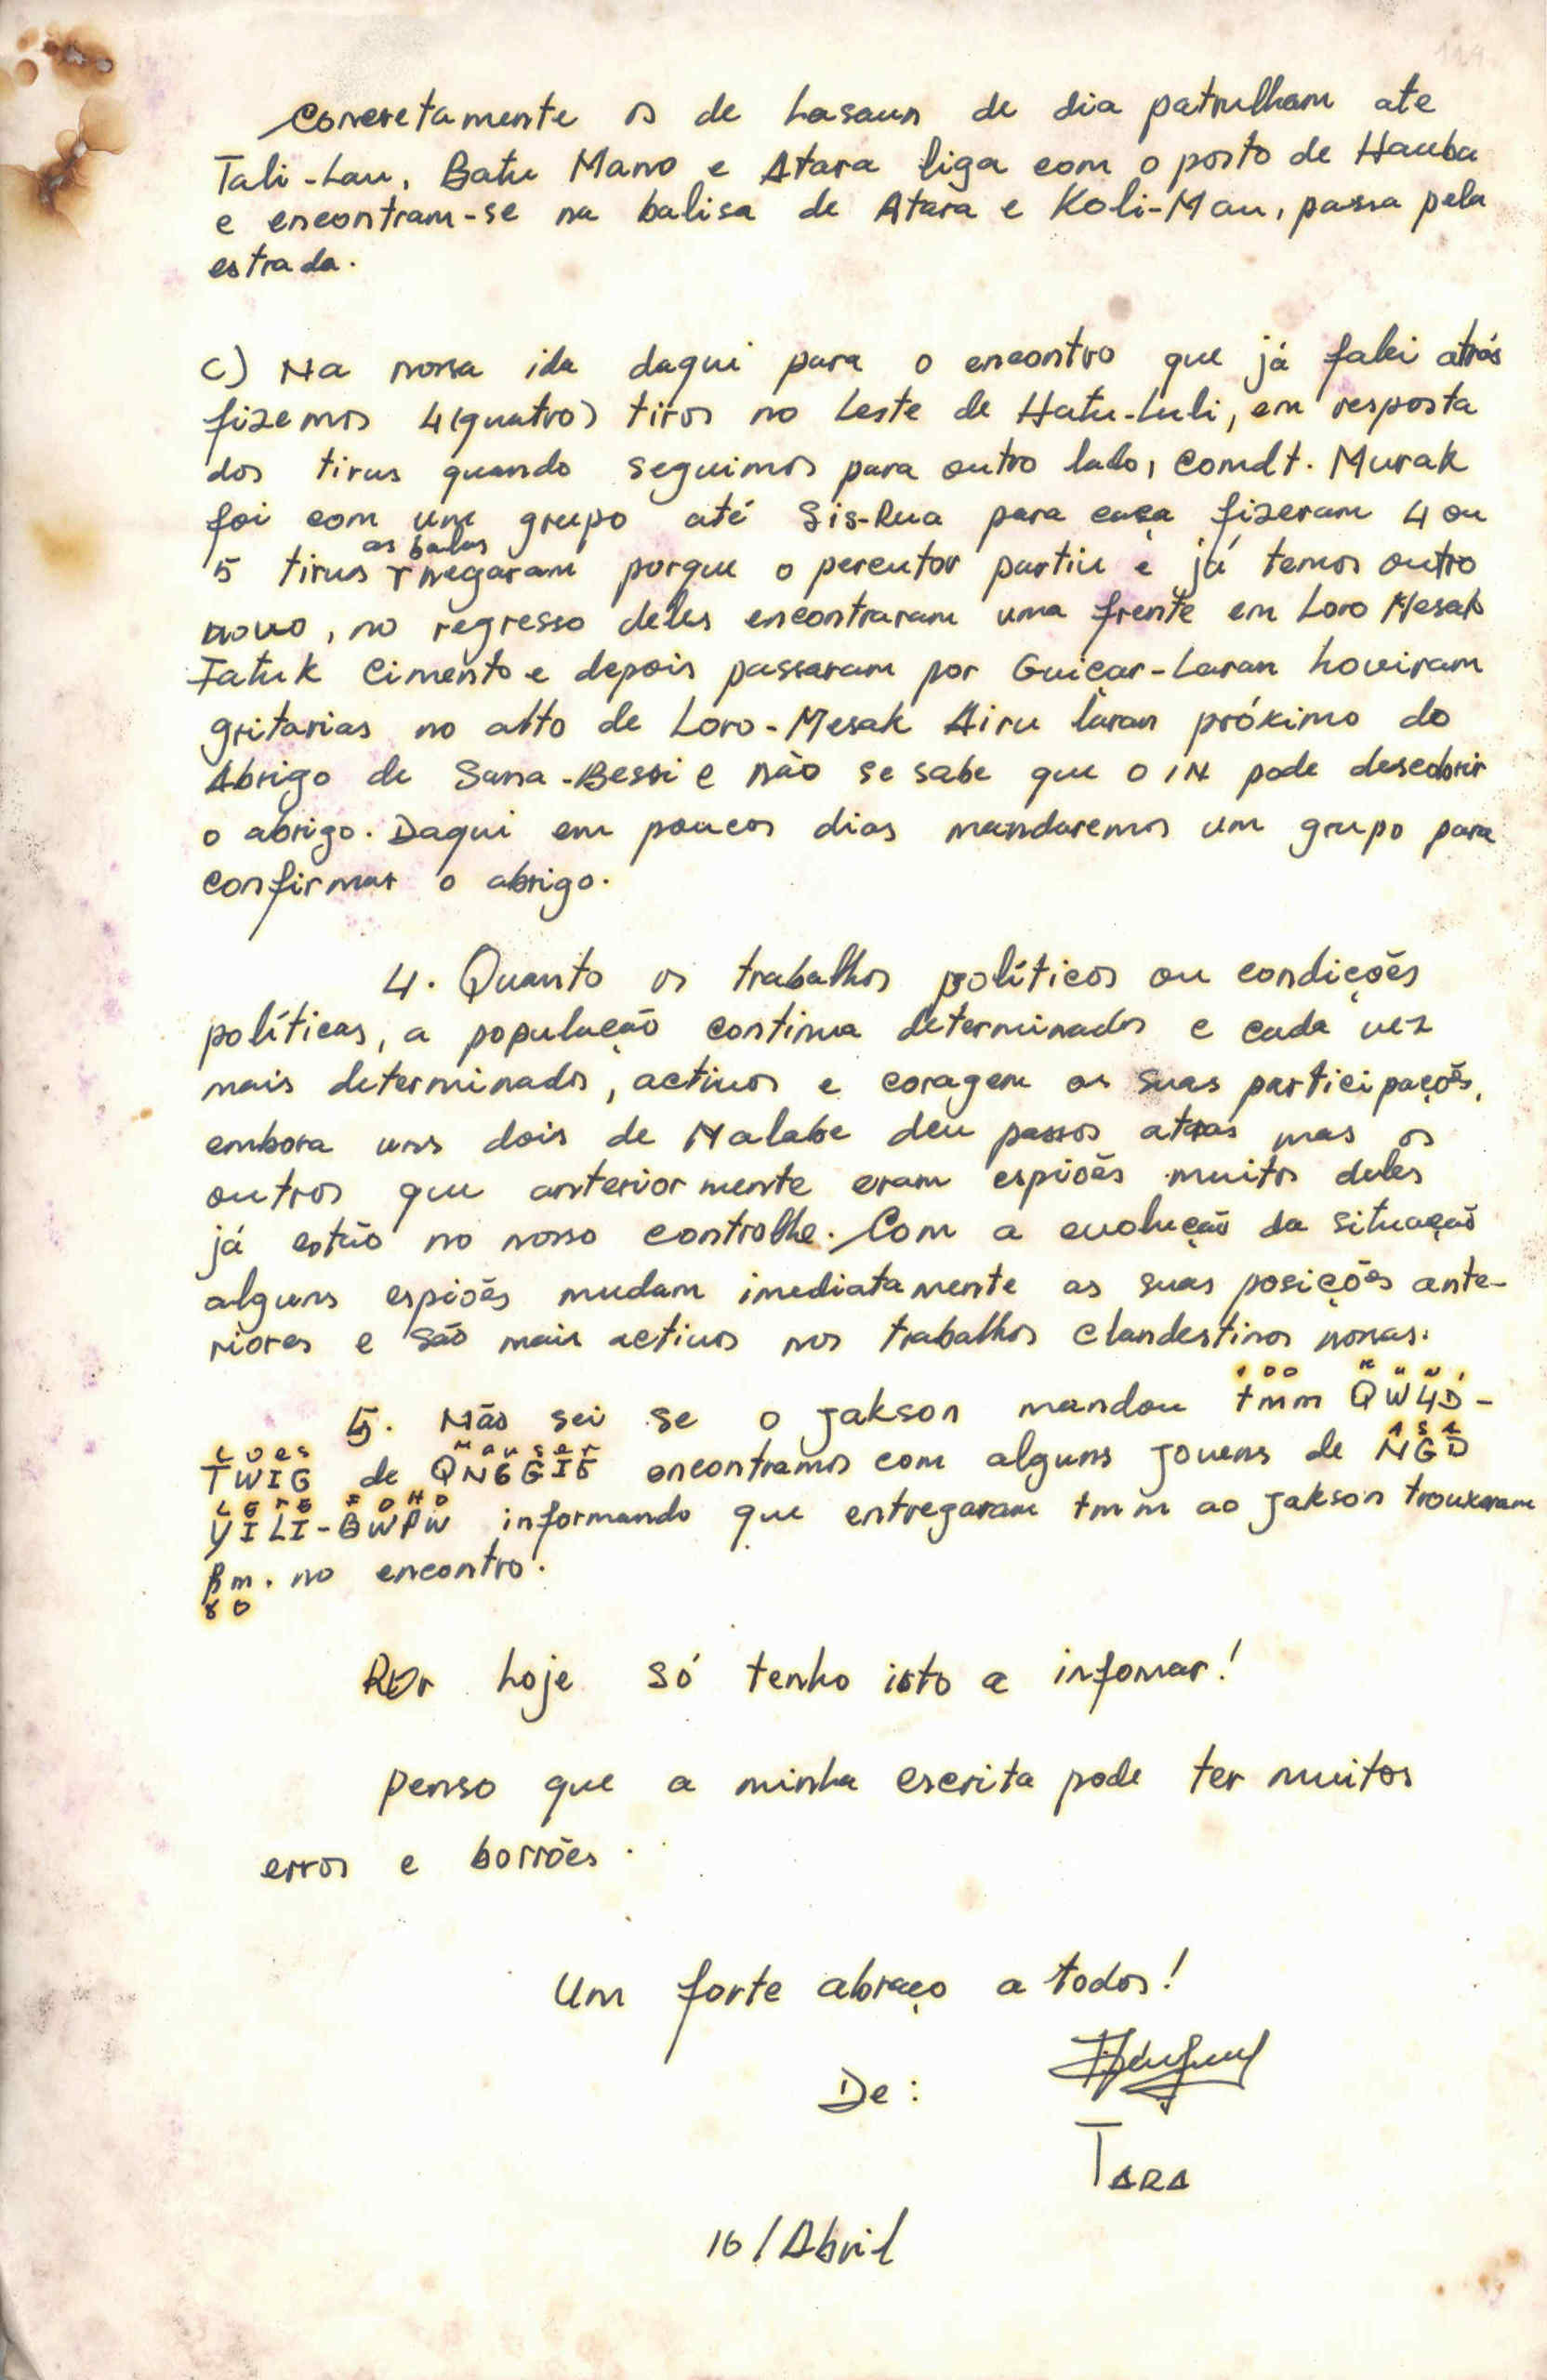 119
Concretamente os de Lasaun de dia patrulham ate
Tali-Lau, Batu Mano e Atara liga com o posto de Hauba
e encontram-se na balisa de Atara e Koli-Mau, passa pela
estrada.
C) Na nossa ida daqui para o encontro que já falei atrás
fizemos 4(quatro) tiros no Leste de Hatu-Luli, em resposta
dos tirus quando seguimos para outro lado, Comdt. Murak
foi com um grupo até Sis-Rua para caça fizeram 4 ou
as balas
5 tirus negaram porque o percutor partiu e já temos outro
novo, no regresso deles encontraram uma frente em Loro Mesak
Fatuk Cimento e depois passaram por Guiçar-Laran houviram
gritarias no alto de Loro-Mesak Airu laran próximo do
Abrigo de Sana-Bessi e não se sabe que o IN pode descobrir
o abrigo. Daqui em poucos dias mandaremos um grupo para
confirmar o abrigo.
4. Quanto os trabalhos políticos ou condições
políticas, a população continua determinados e cada vez
mais determinados, activos e coragem as suas participações,
embora uns dois de Malabe deu passos atras mas os
outros que anteriormente eram espiões muitos deles
já estão no nosso controlhe. Com a evolução da situação
alguns espiões mudam imediatamente as suas posições ante-
riores e são mais activos nos trabalhos clandestinos nossas.
1 0 0 M U N I
5. Não sei se o Jakson mandou tmm QW4D-
C O E S M A U S E R A S A
TWIG de QN6GIF encontramos com alguns jovens de NGD
L E T E F O H O
YILI-BWPW informando que entregaram tmm ao Jakson trouxeram
βm. no encontro.
8 0
Por hoje só tenho isto a infomar!
Penso que a minha escrita pode ter muitos
erros e borrões.
Um forte abraço a todos!
De:
TARA
16/Abril